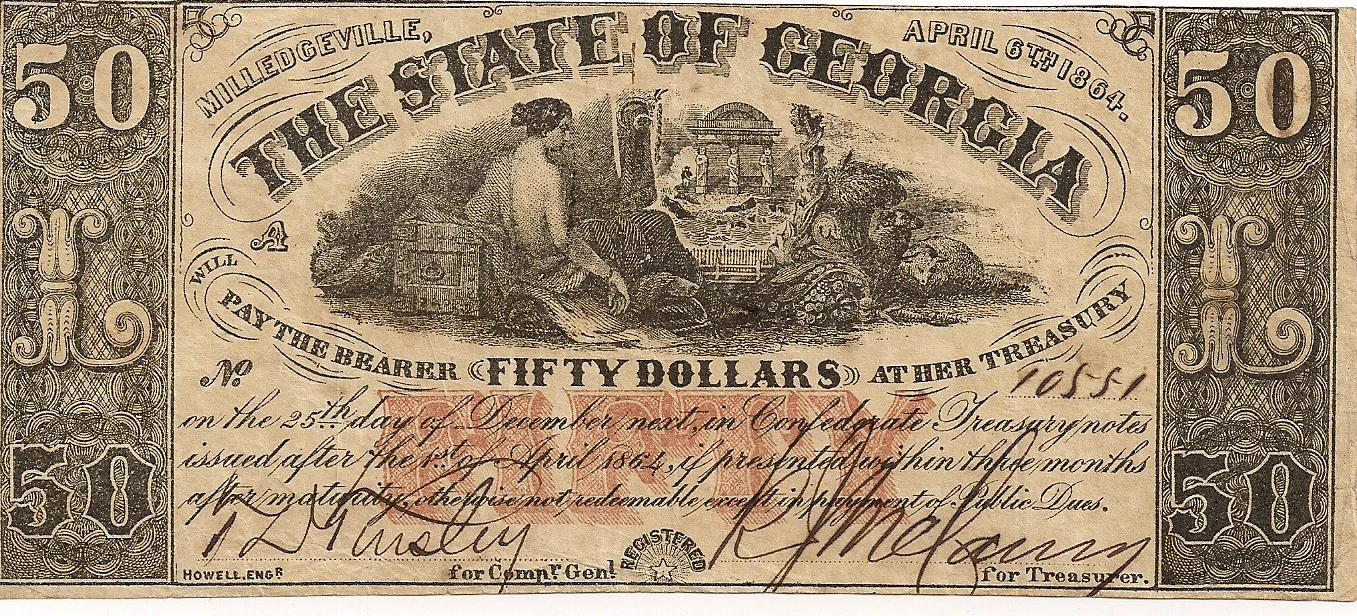 50
50
MILLEDGEVILLE,
APRIL 6TH 1864.
THE STATE OF GEORGIA
A
L
L
WILL PAY THE BEARER FIFTY DOLLARS AT HER TREASURY
No 10551
on the 25th day of December next, in Confederate Treasury notes
issued after the 1st of April 1864, if presented within three months
after maturity, otherwise not redeemable except in payment of Public Dues.
FIFTY
50
50
REGISTERED
HOWELL, ENGR
for Compr Genl
for Treasurer.